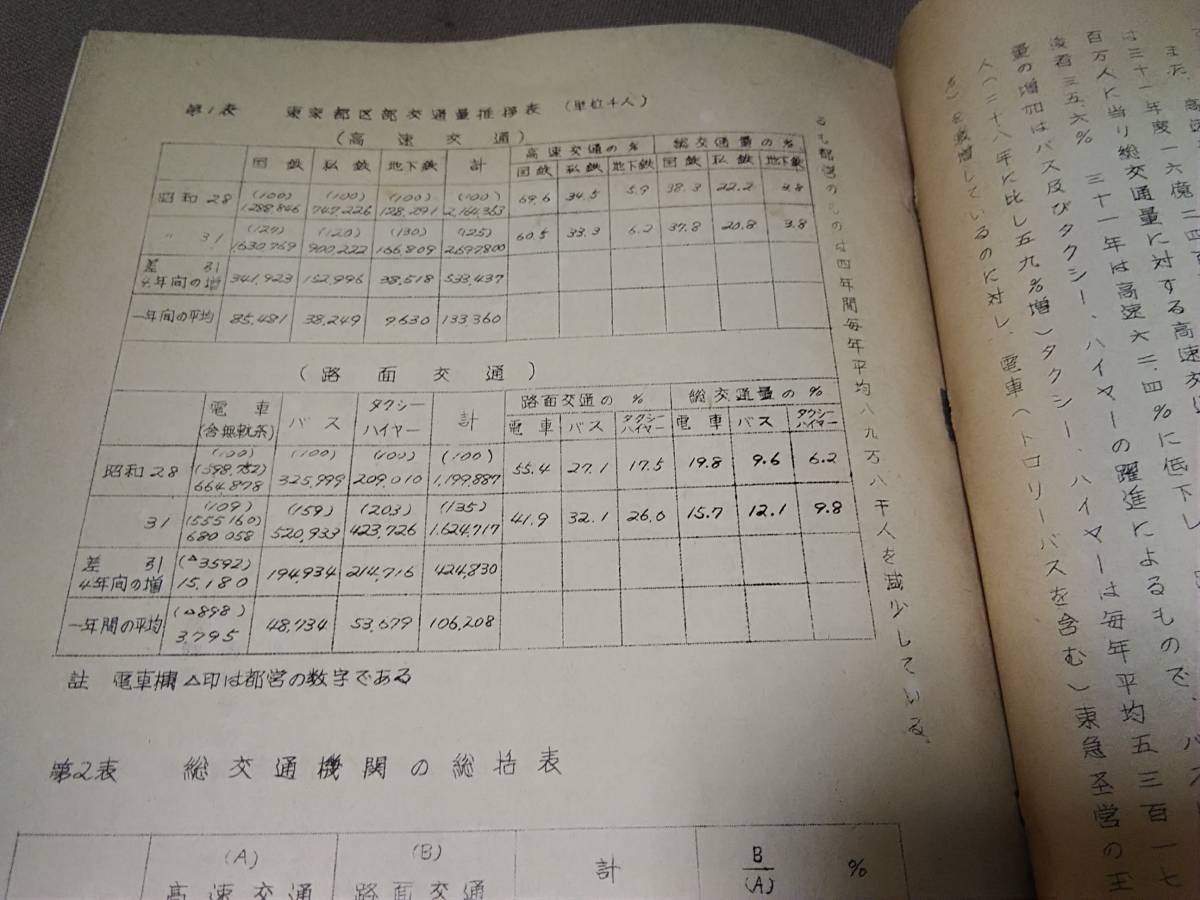 第1表 東京都区部交通量推移表 (単位千人)
(高速交通)
国鉄 私鉄 地下鉄 計 高速交通の% 総交通量の%
国鉄 私鉄 地下鉄 国鉄 私鉄 地下鉄
昭和28 (100) (100) (100) (100)
1,288,846 747,226 128,291 2,164,363 34.5 5.9 38.3 22.2 3.8
〃 31 (120) (130) (125)
1,630,769 900,222 166,809 2,697,800 60.5 33.3 6.2 37.8 20.8 3.8
差引
4年间の増 341,923 152,996 38,518 533,437
一年间の平均 85,481 38,249 9,630 133,360
(路面交通)
電車
(含無軌条) バス タクシー
ハイヤー 計 路面交通の% 総交通量の%
電車 バス タクシー
ハイヤー 電車 バス タクシー
ハイヤー
昭和28 (100) (100) (100) (100)
664,878 325,999 209,010 1,199,887 55.4 27.1 17.5 19.8 9.6 6.2
31 (109) (159) (203) (135)
(555160)
680058 520,933 423,726 1,624,717 41.9 32.1 26.0 15.7 12.1 9.8
差引
4年向の増 (△3592)
15,180 194,934 214,716 424,830
一年間の平均 (△898)
3,795 48,734 53,679 106,208
註 電車欄△印は都営の数字である
第2表 総交通機関の総括表
(A)
高速交通 (B)
路面交通 計 B
(A) %
は三十一年度一六億二四百
百万人に当り総交通量に対する高速交
三五.六% 三十一年は高速六二.四%に低下し
量の増加はバス及びタクシー、ハイヤーの躍進によるもので、バス
人(二十八年に比し五九%増)タクシー、ハイヤーは毎年平均五三百一七
%)を激増しているのに対し、電車(トロリーバスを含む)東急圣営の玉
都営のものは四年間毎年平均八九万八千人を減少している。